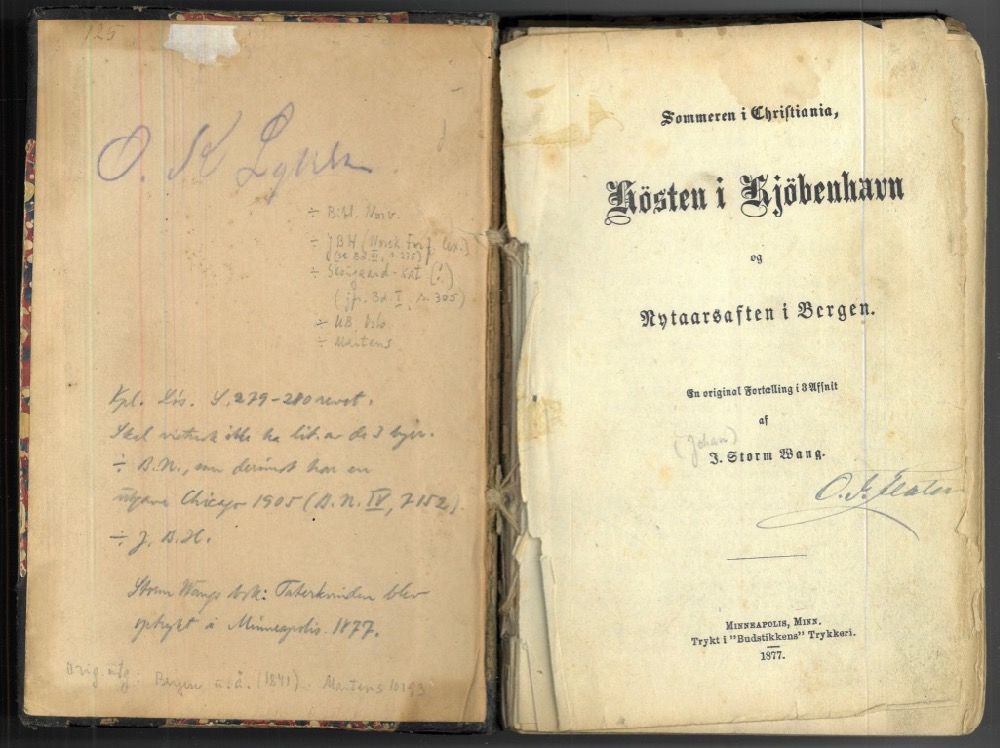 125
O. K.
÷ Bibl. Norv.
÷ JBH (Norsk Forf. lex.)
(se Bd. II, s. 235)
(jfr. Bd. I, s. 305)
÷ UB, Oslo
÷ Martens
Kpl. Lis. S. 279-280 revet.
Skal vistnok ikke ha lit. av de 3 byer.
÷ B.N., som derimot har en
utgave Chicago 1905 (B.N. IV, 7152).
÷ J.B.H.
Storm Wangs bok: Taterkvinden blev
optrykt i Minneapolis 1877.
Orig. utg.: Bergen u.å. (1841). Martens 10193
Sommeren i Christiania,
Hösten i Kjöbenhavn
og
Nytaarsaften i Bergen.
En original Fortælling i 3 Afsnit
af
(Johan)
J. Storm Wang.
MINNEAPOLIS, MINN.
Trykt i "Budstikkens" Trykkeri.
1877.